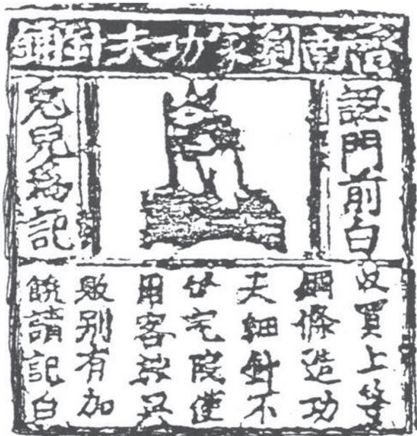 濟南劉家功夫針鋪
認門前白
兔兒為記
收買上等
鋼條造功
夫細針不
宅院使
用客
別有加
饒請記白